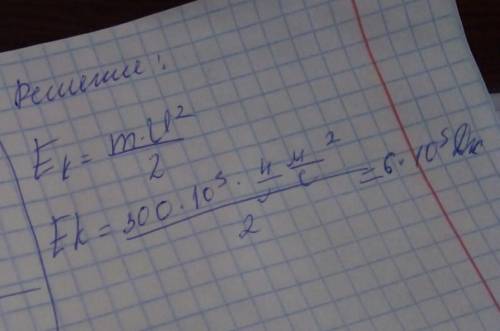 Решение:
Eк = m·V²/2
Ek = 300·10³ · 4 м/с ²/2 = 6·10⁵ Дж